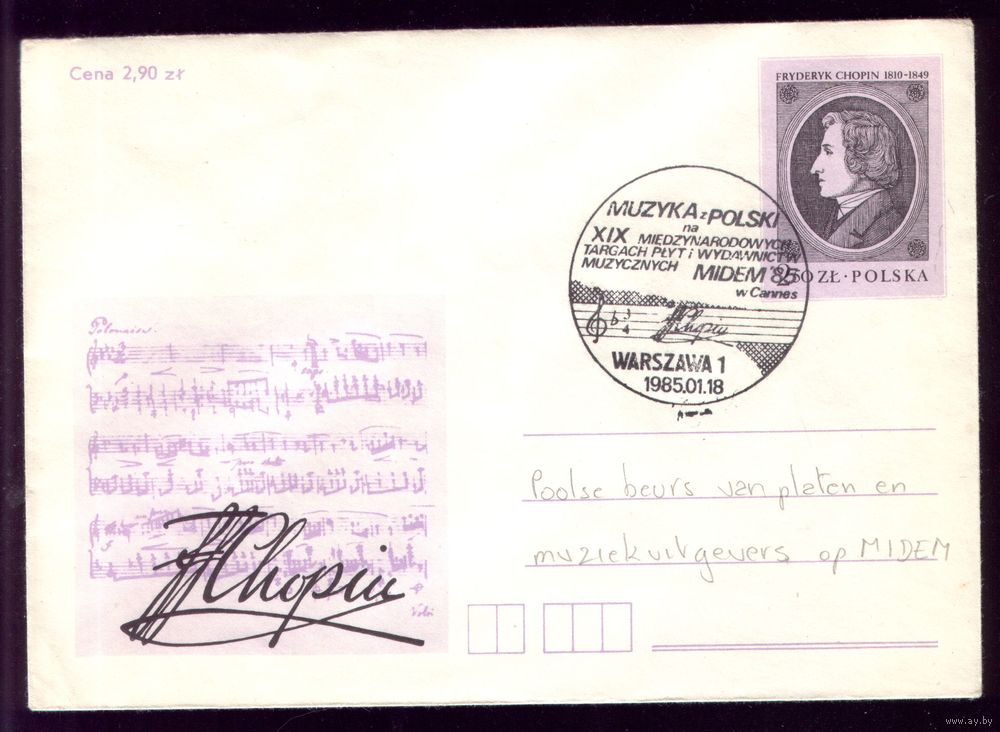 Cena 2,90 zł
FRYDERYK CHOPIN 1810-1849
ZŁ · POLSKA
MUZYKA z POLSKI
na
XIX MIĘDZYNARODOWYCH
TARGACH PŁYT i WYDAWNICTW
MUZYCZNYCH MIDEM '85
w Cannes
Chopin
WARSZAWA 1
1985.01.18
Polonaise.
Chopin
Poolse beurs van platen en
muziekuitgevers op MIDEM
www.ay.by